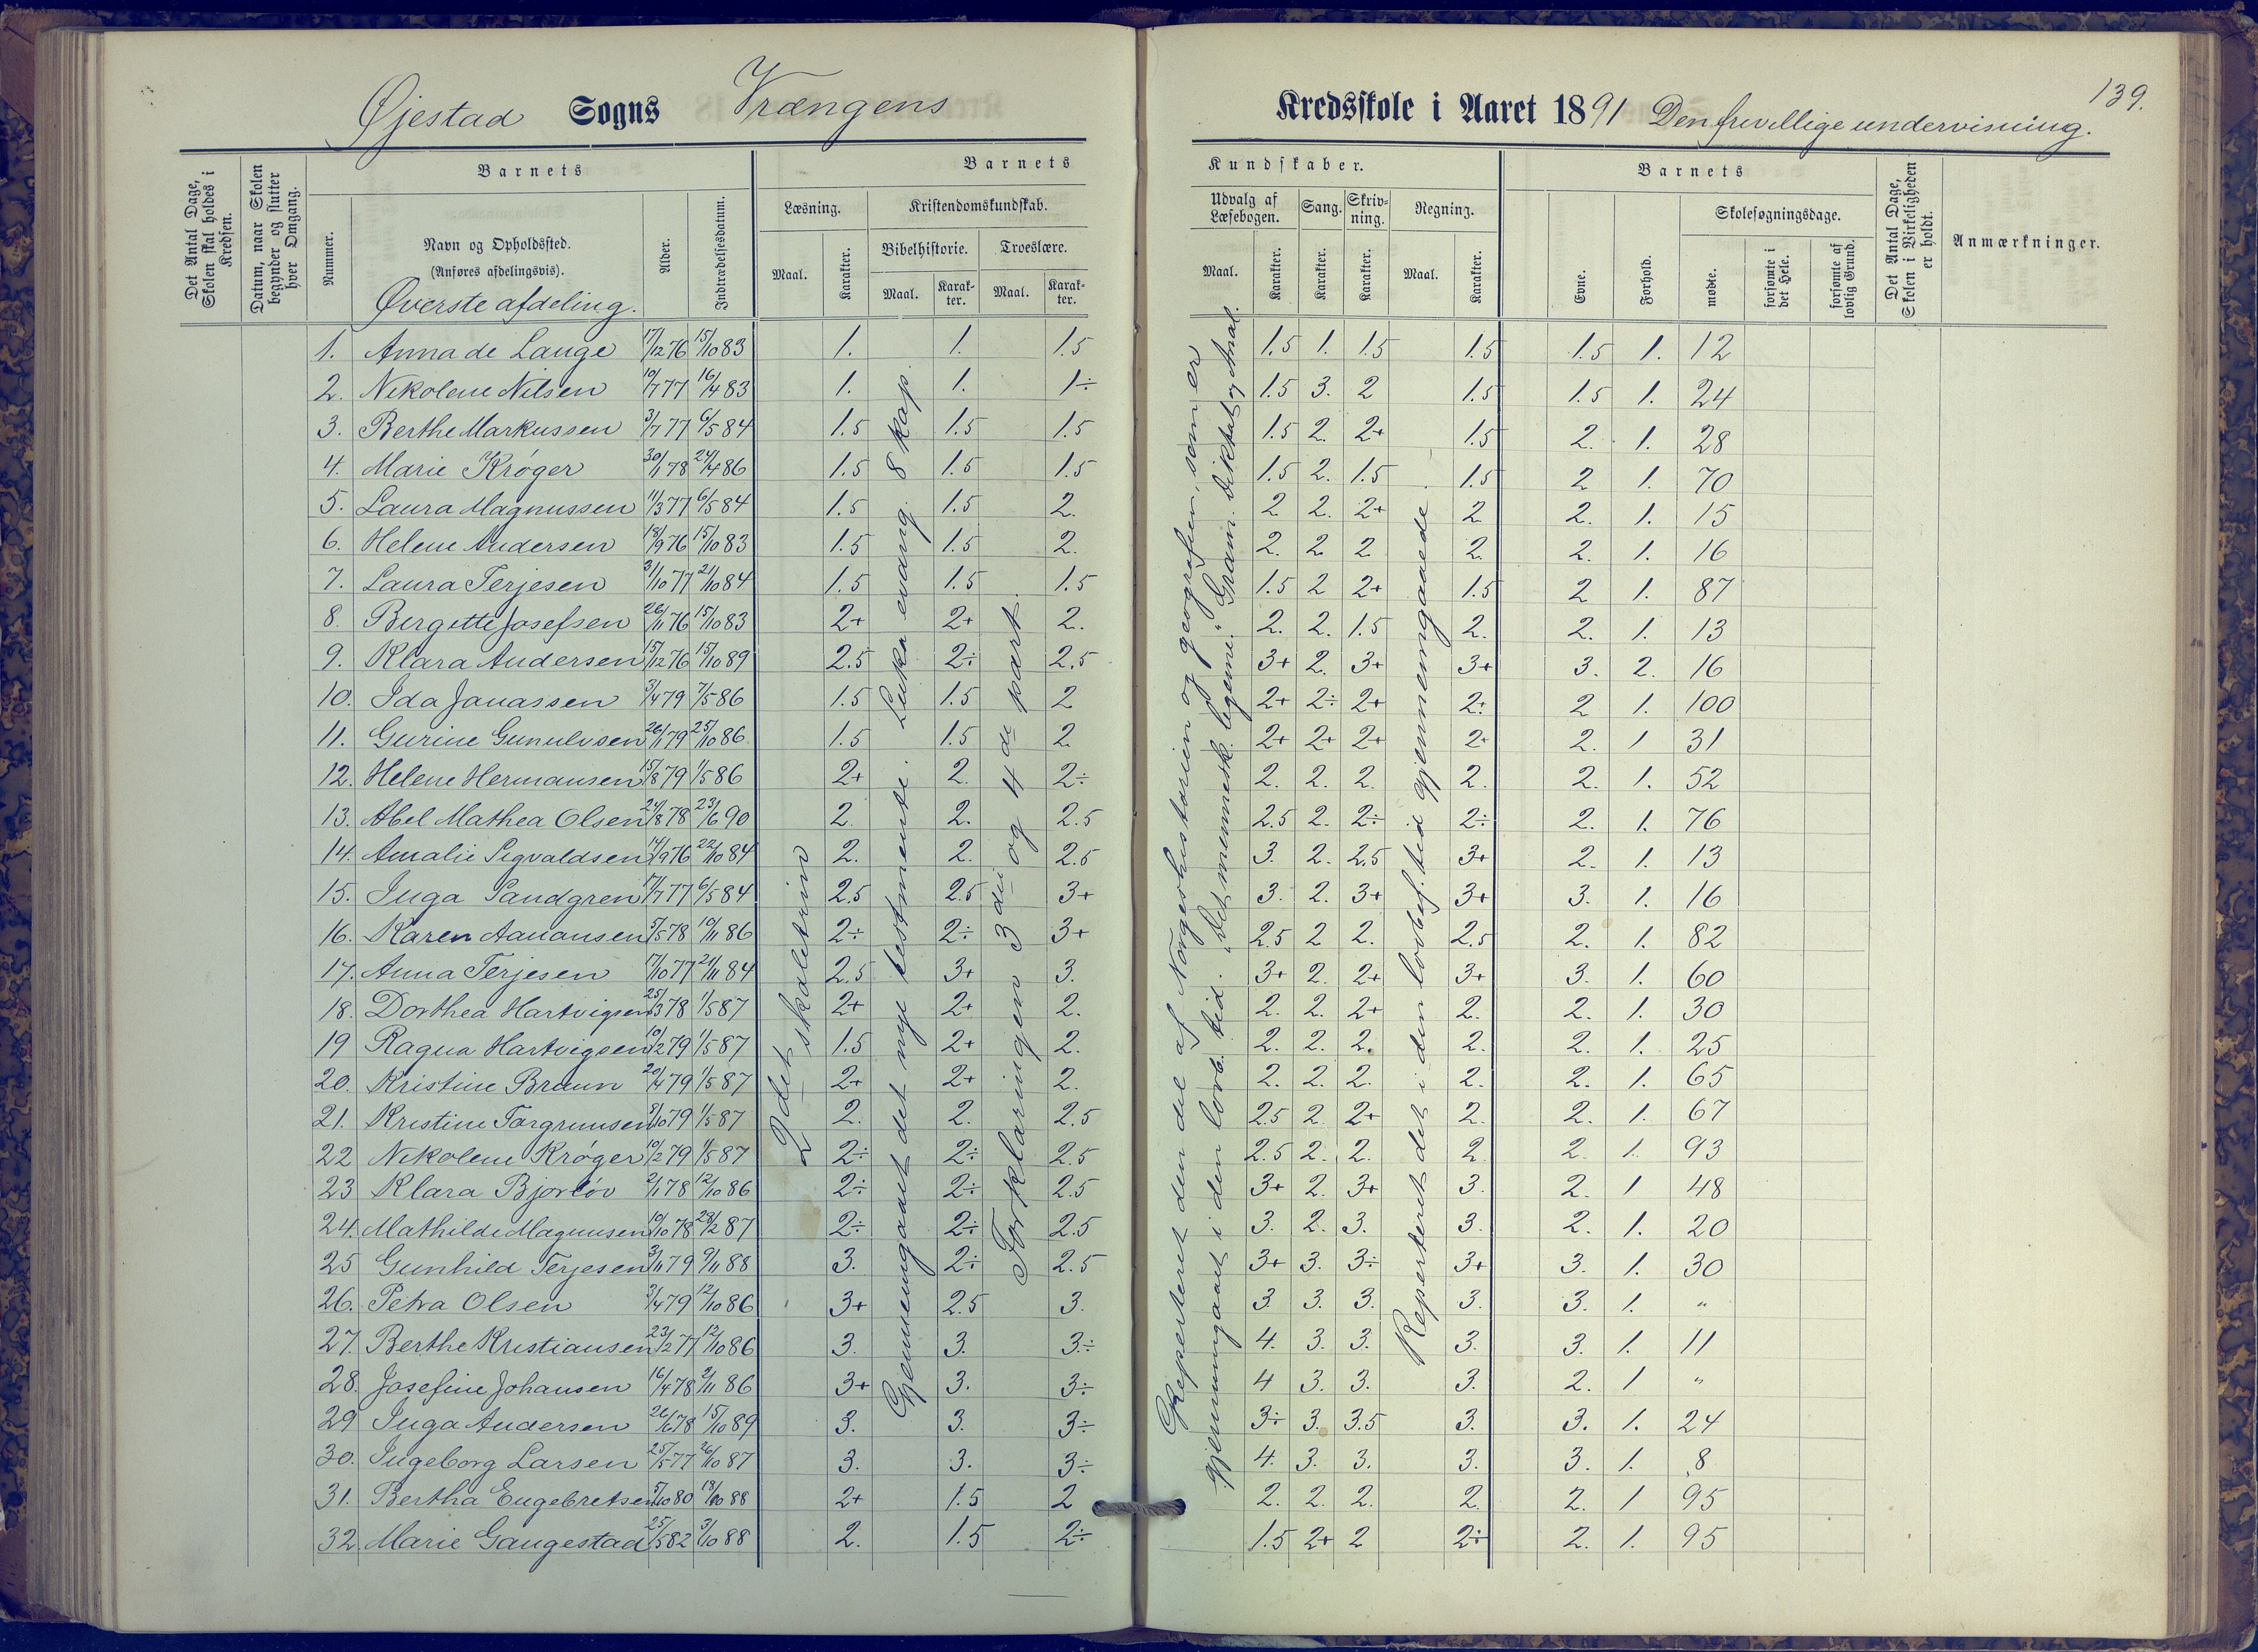 Øjestad Sogns Vrængens
Kredsskole i Aaret 1891 Den frivillige undervisning.
139.
Det Antal Dage, Skolen skal holdes i Kredsen.
Datum, naar Skolen begynder og slutter hver Omgang.
Barnets
Nummer.
Navn og Opholdssted.
(Anføres afdelingsvis).
Øverste afdeling.
Alder.
Indtrædelsesdatum.
Barnets
Læsning.
Maal.
Karakter.
Kristendomskundskab.
Bibelhistorie.
Maal.
Karakter.
Troeslære.
Maal.
Karakter.
Kundskaber.
Udvalg af Læsebogen.
Maal.
Karakter.
Sang.
Karakter.
Skrivning.
Karakter.
Regning.
Maal.
Karakter.
Barnets
Evne.
Forhold.
Skolesøgningsdage.
mødte.
forsømte i det Hele.
forsømte af lovlig Grund.
Det Antal Dage, Skolen i Virkeligheden er holdt.
Anmærkninger.
1. Anna de Lange 17/12 76 15/10 83 1. 1. 1.5 1.5 1. 1.5 1.5 1.5 1. 12
2. Nikolene Nilsen 10/7 77 16/4 83 1. 1. 1÷ 1.5 3. 2 1.5 1.5 1. 24
3. Berthe Markussen 3/7 77 6/5 84 1.5 1.5 1.5 1.5 2. 2+ 1.5 2. 1. 28
4. Marie Krøger 30/1 78 24/4 86 1.5 1.5 1.5 1.5 2. 1.5 1.5 2 1. 70
5. Laura Magnussen 11/3 77 6/5 84 1.5 1.5 2. 2 2. 2+ 2 2. 1. 15
6. Helene Andersen 18/9 76 15/10 83 1.5 1.5 2. 2. 2. 2 2. 2. 1. 16
7. Laura Terjesen 31/10 77 21/10 84 1.5 1.5 1.5 1.5 2 2+ 1.5 2 1. 87
8. Bergitte Josefsen 26/11 76 15/10 83 2+ 2+ 2. 2. 2. 1.5 2. 2. 1. 13
9. Klara Andersen 15/12 76 15/10 89 2.5 2÷ 2.5 3+ 2. 3+ 3+ 3. 2. 16
10. Ida Janassen 3/4 79 7/5 86 1.5 1.5 2 2+ 2÷ 2+ 2+ 2 1. 100
11. Gurine Gunulvsen 26/1 79 25/10 86 1.5 1.5 2 2+ 2+ 2+ 2+ 2. 1 31
12. Helene Hermansen 15/8 79 1/5 86 2+ 2. 2÷ 2. 2. 2. 2. 2. 1. 52
13. Abel Mathea Olsen 24/8 78 23/6 90 2. 2. 2.5 2.5 2. 2÷ 2÷ 2. 1. 76
14. Amalie Sigvaldsen 14/9 76 22/10 84 2. 2. 2.5 3. 2. 2.5 3+ 2. 1. 13
15. Inga Sandgren 17/7 77 6/5 84 2.5 2.5 3+ 3. 2. 3+ 3+ 3. 1. 16
16. Karen Aanansen 5/5 78 10/11 86 2÷ 2÷ 3+ 2.5 2 2. 2.5 2. 1. 82
17. Anna Terjesen 17/10 77 21/11 84 2.5 3+ 3. 3+ 2. 2+ 3+ 3. 1. 60
18. Dorthea Hartvigsen 25/3 78 1/5 87 2+ 2+ 2. 2. 2. 2+ 2. 2. 1. 30
19 Ragna Hartvigsen 10/2 79 1/5 87 1.5 2+ 2. 2. 2. 2. 2. 2. 1. 25
20. Kristine Bruun 20/4 79 1/5 87 2+ 2+ 2. 2. 2. 2. 2. 2. 1. 65
21. Kristine Torgrimsen 9/10 79 1/5 87 2. 2. 2.5 2.5 2. 2+ 2. 2. 1. 67
22 Nikolene Krøger 10/2 79 1/5 87 2÷ 2÷ 2.5 2.5 2. 2. 2 2. 1. 93
23 Klara Bjorløv 2/1 78 12/10 86 2÷ 2÷ 2.5 3+ 2. 3+ 3. 2. 1 48
24. Mathilde Magnusen 10/10 78 28/2 87 2÷ 2÷ 2.5 3. 2. 3. 3. 2. 1. 20
25 Gunhild Terjesen 3/11 79 9/11 88 3. 2÷ 2.5 3+ 3. 3÷ 3+ 3. 1. 30
26. Petra Olsen 3/4 79 12/10 86 3+ 2.5 3. 3 3. 3. 3. 3. 1. "
27. Berthe Kristiansen 23/2 77 12/10 86 3. 3. 3÷ 4. 3. 3. 3. 3. 1. 11
28. Josefine Johansen 16/4 78 2/11 86 3+ 3. 3÷ 4 3. 3. 3. 2. 1 "
29 Inga Andersen 26/6 78 15/10 89 3. 3. 3÷ 3÷ 3. 3.5 3. 3. 1. 24
30. Ingeborg Larsen 25/5 77 26/10 87 3. 3. 3÷ 4. 3. 3. 3. 3. 1. 8
31. Bertha Engebretsen 5/10 80 18/10 88 2+ 1.5 2 2. 2. 2. 2. 2. 1 95
32. Marie Gaugestad 25/5 82 3/10 88 2. 1.5 2÷ 1.5 2+ 2 2÷ 2. 1. 95
2det skaletrin
Gjennemgaaet det nye testmente. Luka evang. 8 kap.
Forklaringen 3die og 4de part.
Repeteret den del af Norgeshistorien og geografien, som er
gjennemgaaet i den lovb. tid. "Det mennesk. legeme." Gram. Diktat og Anal.
Repeteret det i den lovbef. tid gjennemgaaede.